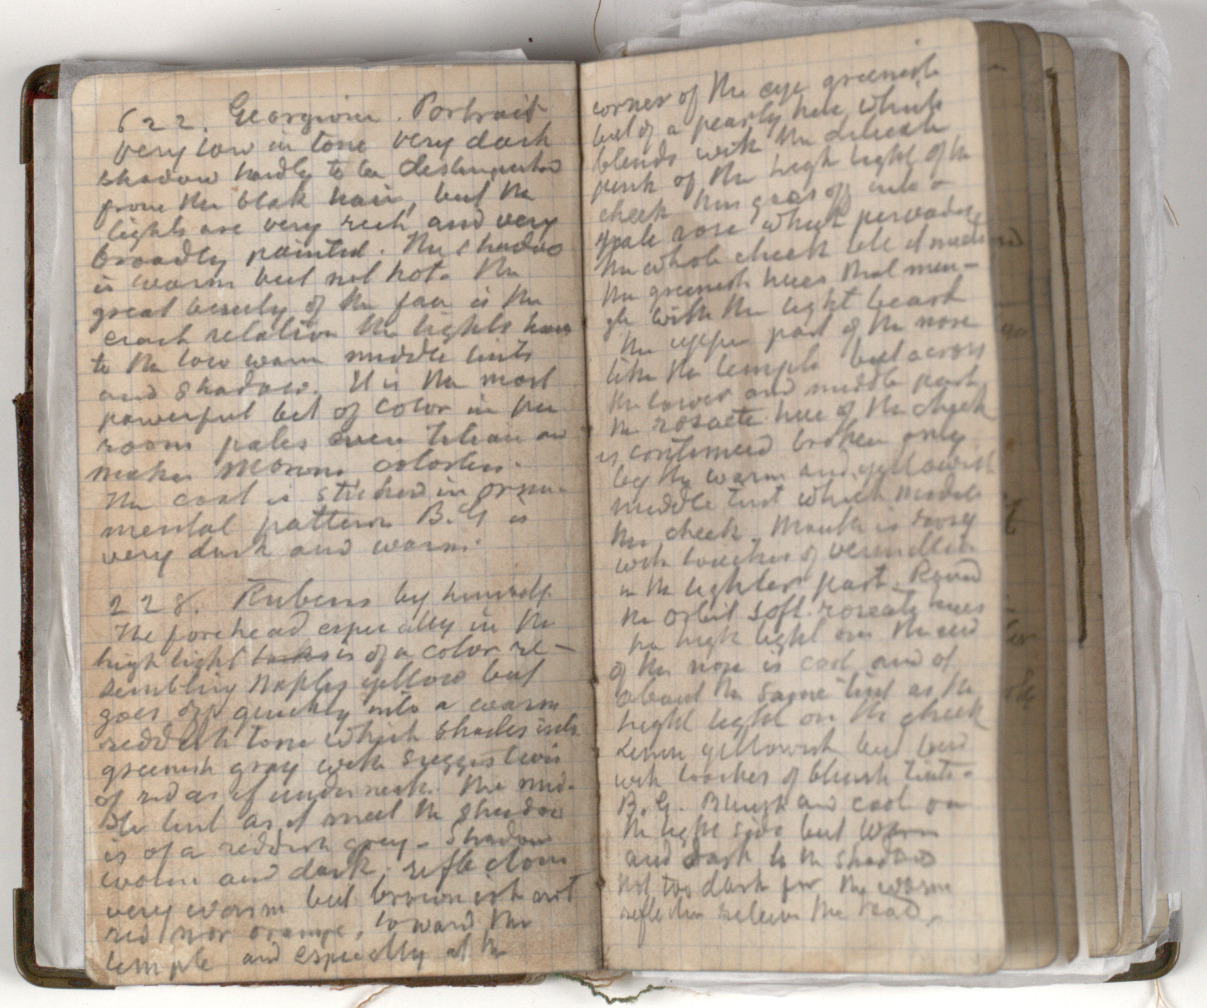 622. Georgione. Portrait
very low in tone very dark
shadow hardly to be distinguished
from the blak hair, but the
lights are very rich and very
broadly painted. The shadow
is warm but not hot. The
great beauty of the face is the
exact relation the lights have
to the low warm middle tints
and shadow. It is the most
powerful bit of color in the
room pales even Titian and
makes Moroni colorless.
The coat is stitched in orna-
mental pattern B.G is
very dark and warm.
228. Rubens by himself
The forehead especially in the
high light is of a color re-
sembling Naples yellow but
goes off quickly into a warm
reddish tone which shades into
greenish gray with suggestion
of red as if underneath. The mid-
dle tint as it meet the shadow
is of a reddish gray - Shadow
warm and dark, reflections
very warm but brownish not
red nor orange, toward the
temple and especially at the
corner of the eye greenish
but of a pearly hue which
blends with the delicate
pink of the high light of the
cheek this goes off into a
pale rose which pervades
the whole cheek till it meets
the greenish hues that min-
gle with the light beard
The upper part of the nose
like the temple but across
the lower and middle part
the roseate hue of the cheek
is continued broken only
by the warm and yellowish
middle tint which models
the cheek. Mouth is rosy
with touches of vermillion
in the lighter part. Round
the orbit soft roseate hues
the high light on the end
of the nose is cool and of
about the same tint as the
hight light on the cheek
Linen yellowish but low
with touches of bluish tints -
B.G. Bluish and cool on
the light side but warm
and dark to the shadow
not too dark for the warm
reflection relieve the head.